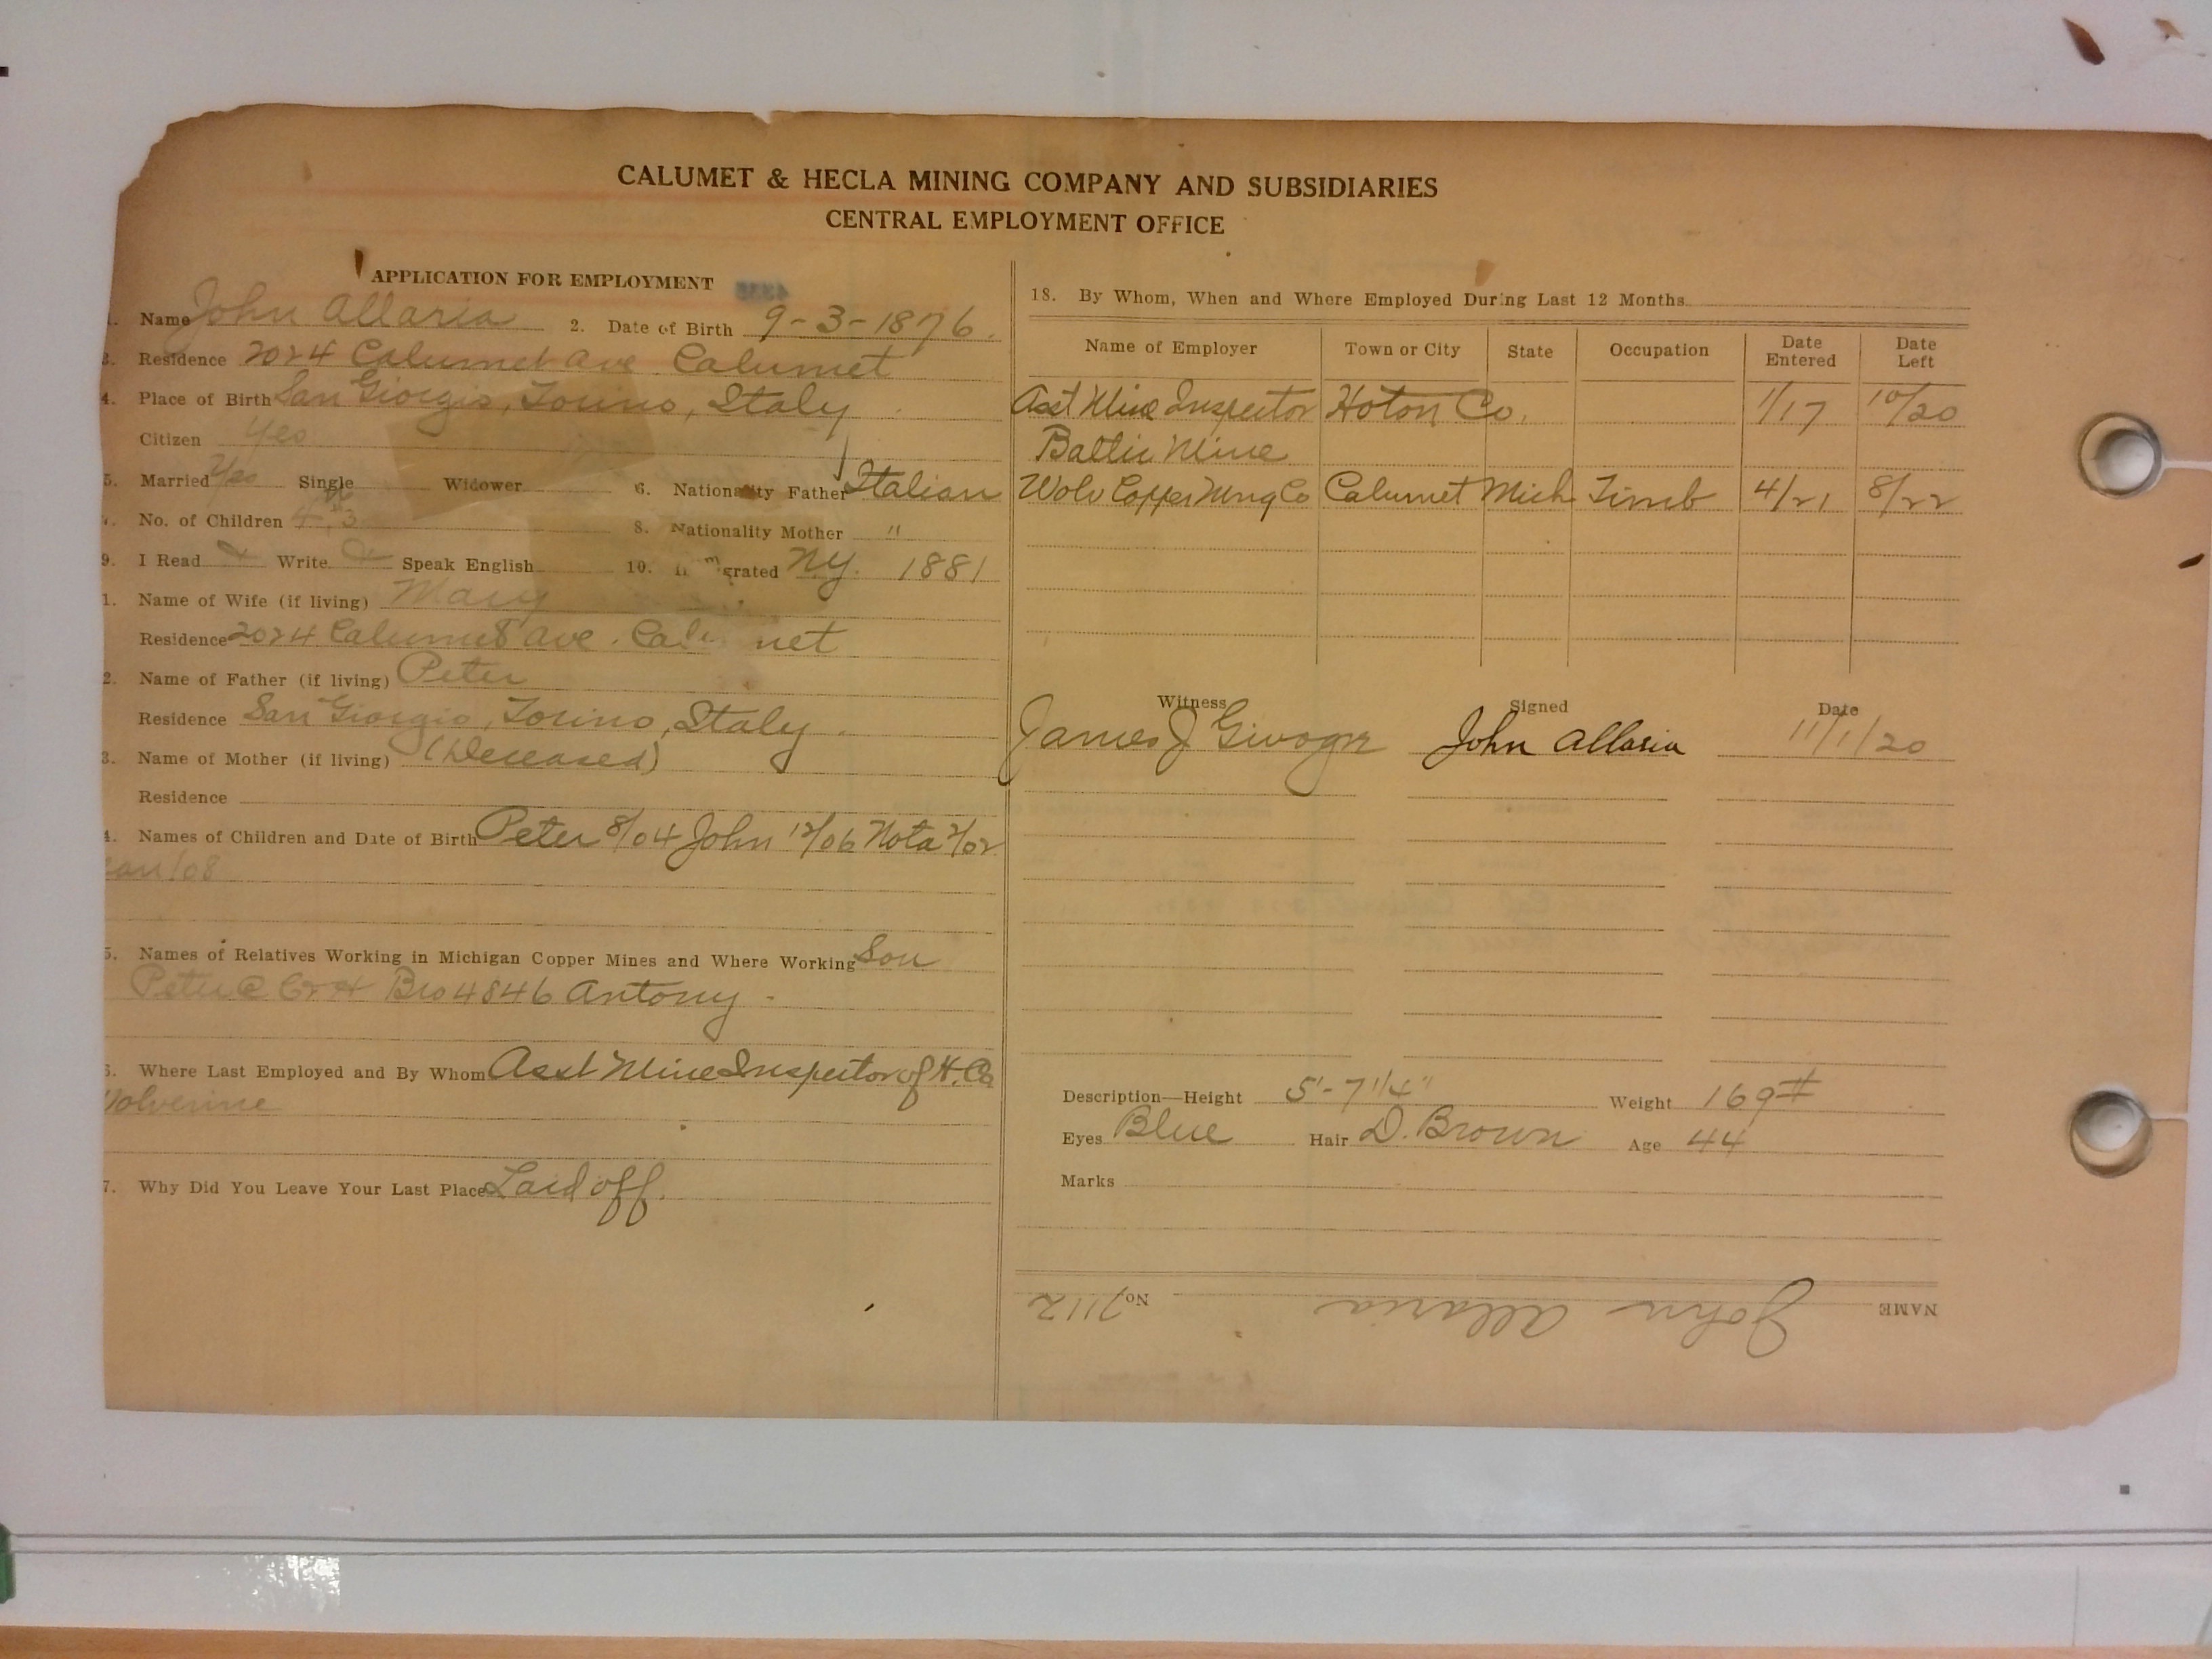 CALUMET & HECLA MINING COMPANY AND SUBSIDIARIES
CENTRAL EMPLOYMENT OFFICE
APPLICATION FOR EMPLOYMENT
Name John Allaria 2. Date of Birth 9-3-1876.
Residence 2024 Calumet Ave. Calumet
4. Place of Birth San Giorgio, Torino, Italy
Citizen Yes
5. Married Yes Single Widower 6. Nationality Father Italian
No. of Children 3 8. Nationality Mother "
9. I Read Write Speak English 10. grated N.Y. 1881
1. Name of Wife (if living) Mary
Residence 2024 Calumet Ave. Cal net
2. Name of Father (if living) Peter
Residence San Giorgio, Torino, Italy.
3. Name of Mother (if living) (Deceased)
Residence
4. Names of Children and Date of Birth Peter 8/04 John 12/06 Nota 2/02
/08
5. Names of Relatives Working in Michigan Copper Mines and Where Working Son
Peter Bro 4846 Antony.
Where Last Employed and By Whom Asst Mine Inspector of H. Co
olverine
7. Why Did You Leave Your Last Place Laid off.
18. By Whom, When and Where Employed During Last 12 Months
Name of Employer Town or City State Occupation Date Entered Date Left
Asst Mine Inspector Hoton Co. 1/17 10/20
Baltic Mine
Wolv Copper Mng Co Calumet Mich Timb 4/21 8/22
Witness Signed Date
James J John Allaria 11/1/20
Description—Height 5'-7 1/4" Weight 169#
Eyes Blue Hair D. Brown Age 44
Marks
NAME John Allaria No. 7112